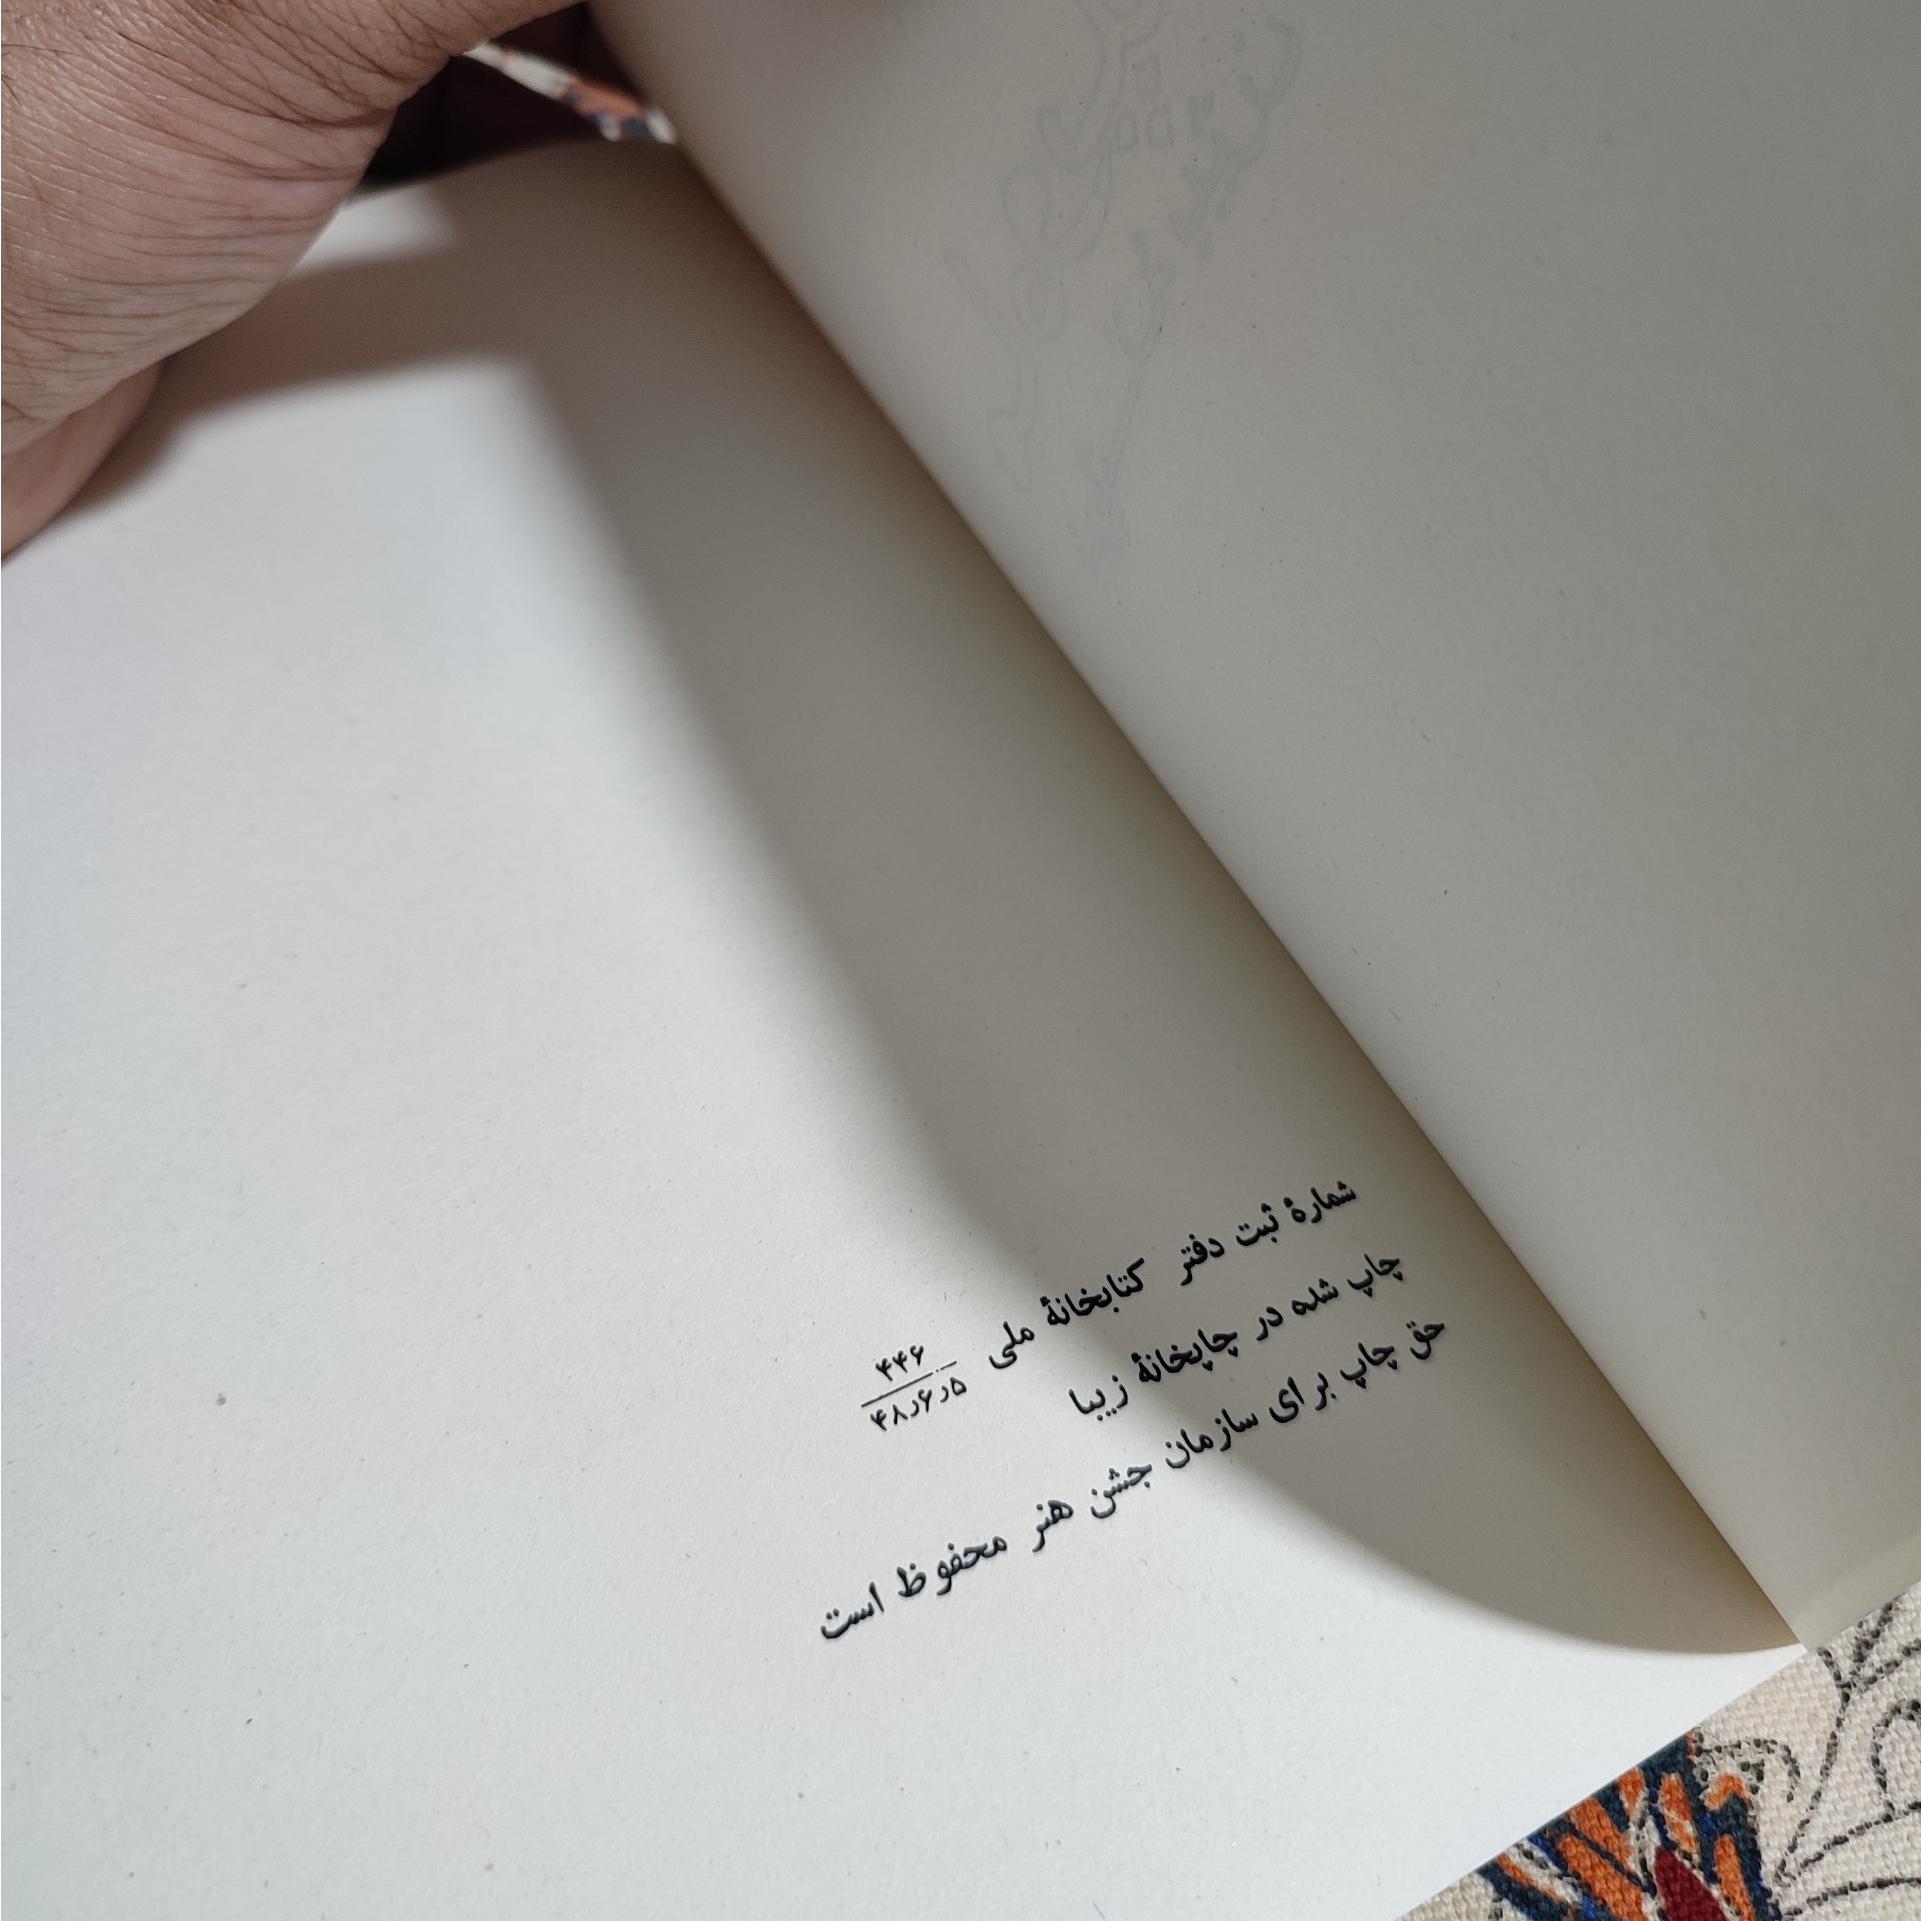 شمارهٔ ثبت دفتر کتابخانهٔ ملی ۴۴۶
۵ر۶ر۴۸
چاپ شده در چاپخانهٔ زیبا
حق چاپ برای سازمان جشن هنر محفوظ است